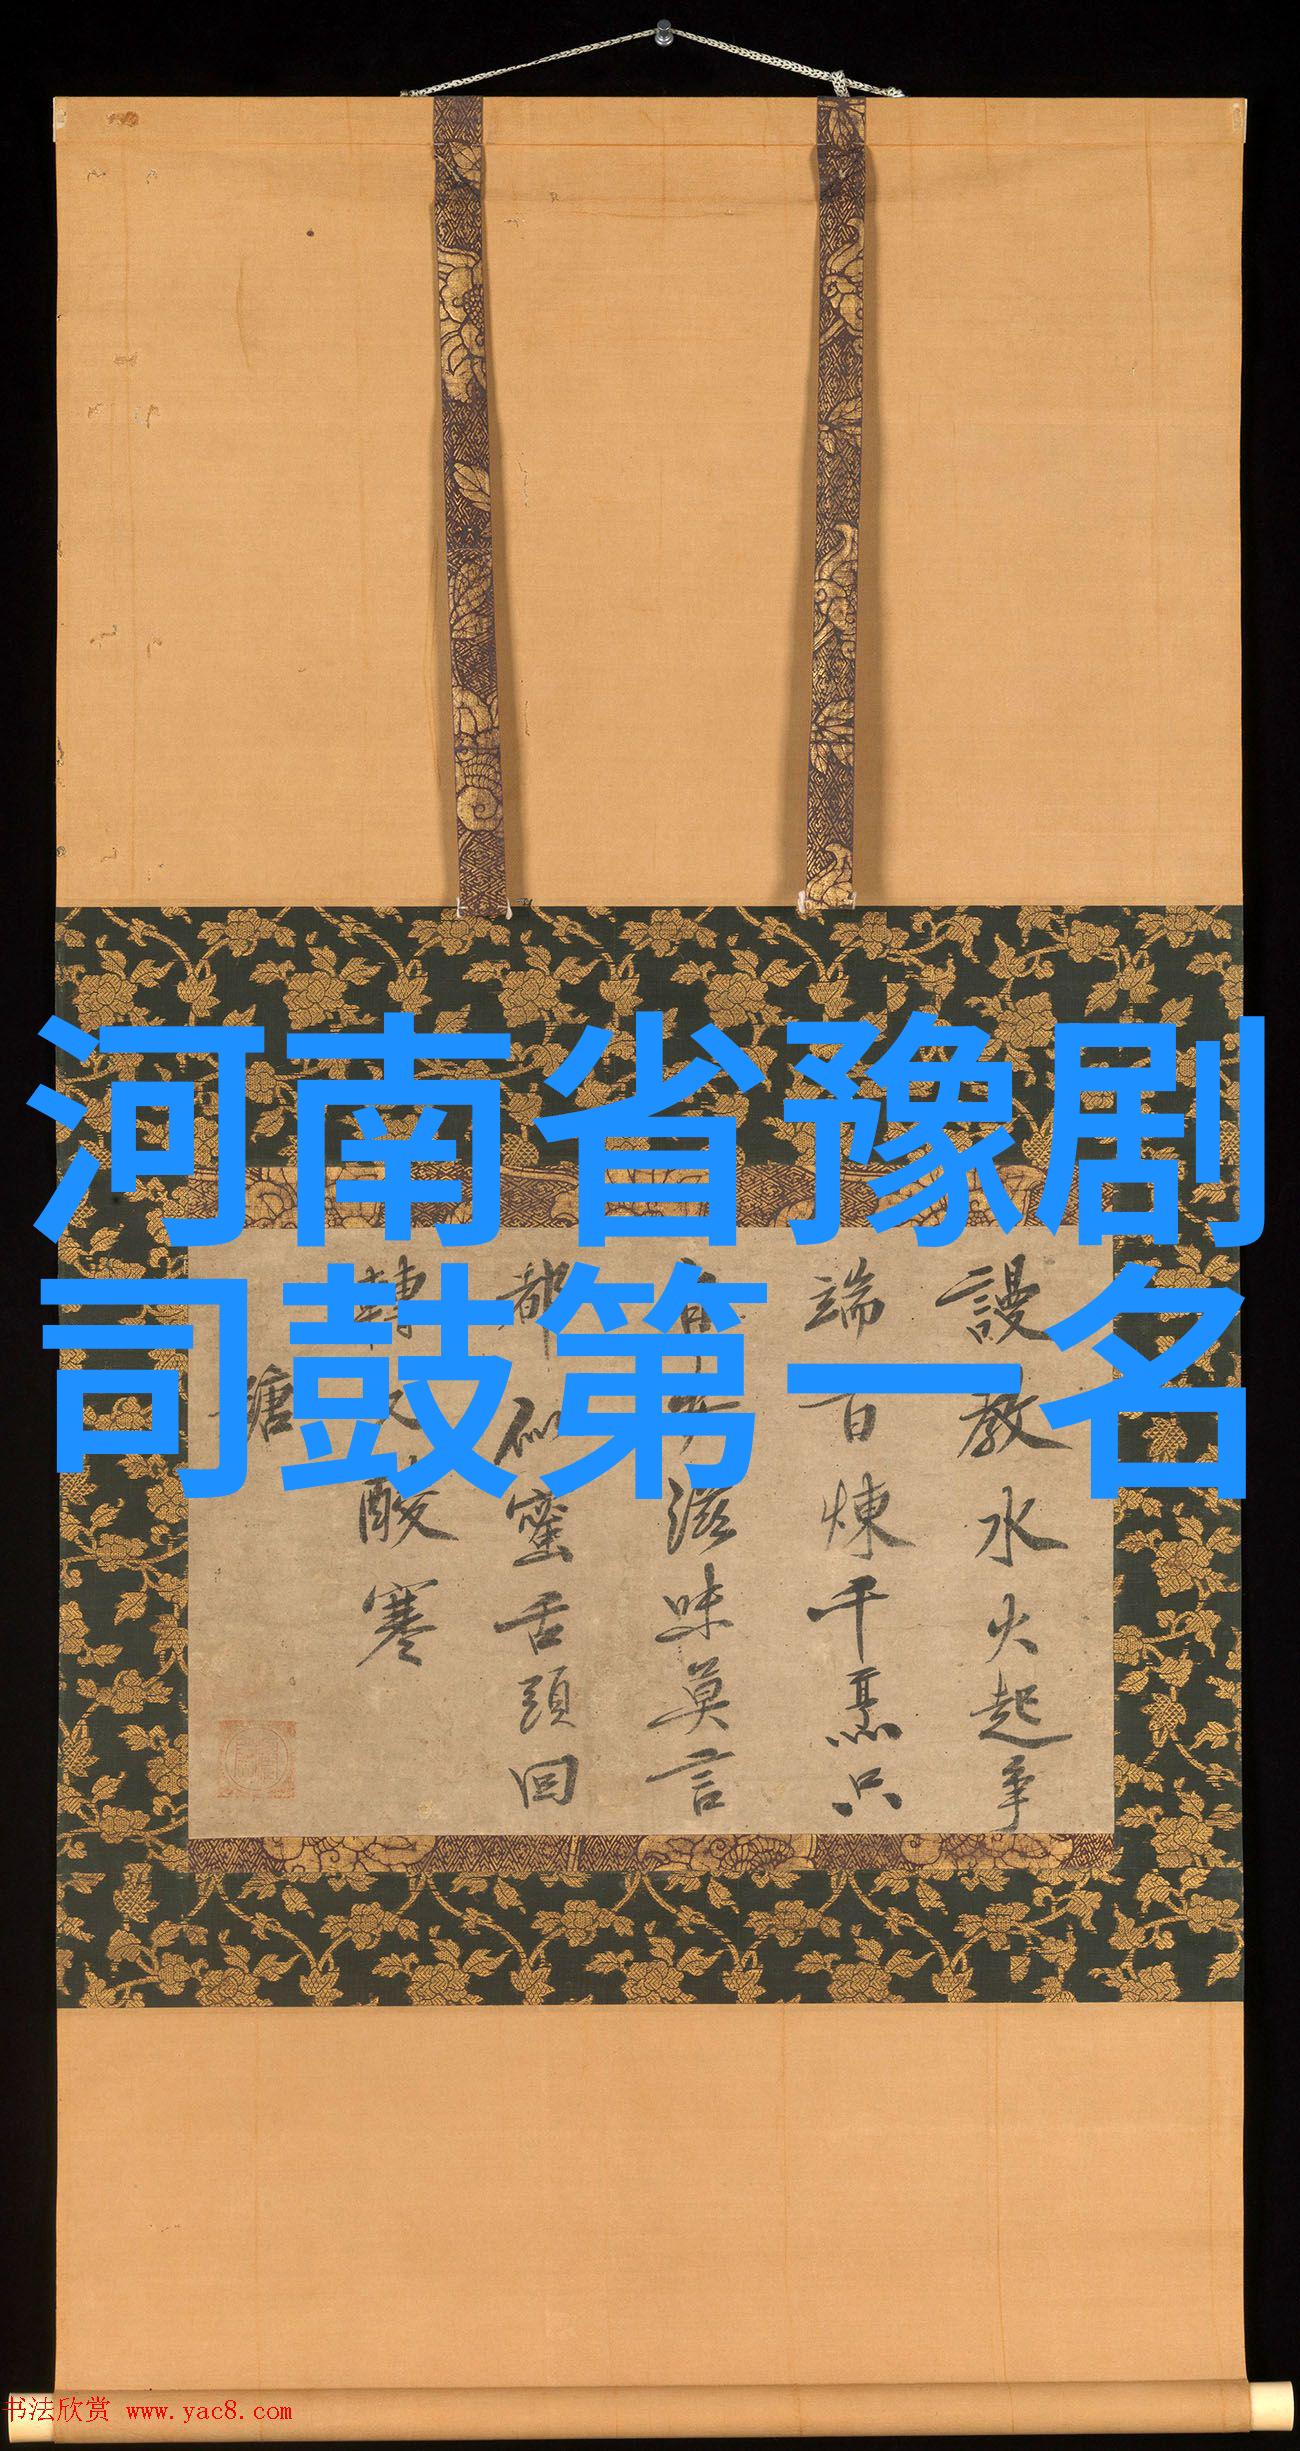 河南省豫剧
司鼓第一名
謾教水火起爭
端百煉千烹只
滋味莫言
都似蜜舌頭回
轉又酸寒
书法欣赏 www.yac8.com